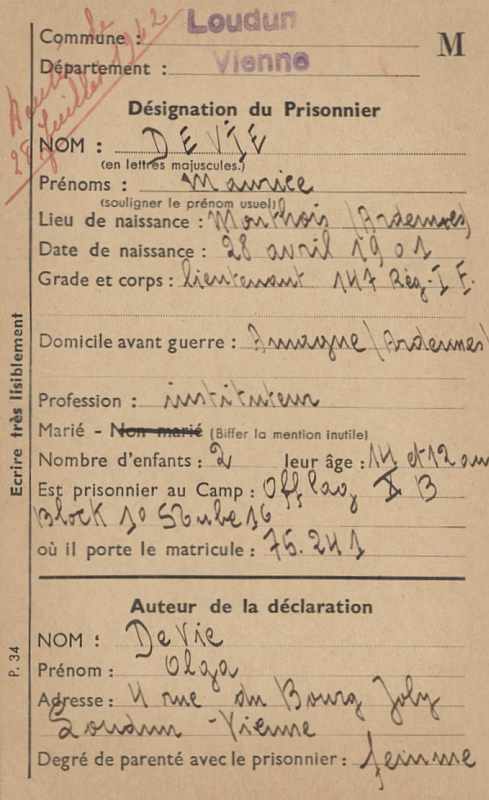 Commune : Loudun
M
Département : Vienne
28 juillet 1942
Désignation du Prisonnier
NOM : DEVIE
(en lettres majuscules.)
Prénoms : Maurice
(souligner le prénom usuel)
Lieu de naissance : Monthois (Ardennes)
Date de naissance : 28 avril 1901
Grade et corps : lieutenant 147 Rég. I F.
Domicile avant guerre : Amagne (Ardennes)
Profession : instituteur
Marié - Non marié (Biffer la mention inutile)
Nombre d'enfants : 2 leur âge : 14 et 12 an
Est prisonnier au Camp : Offlag X B
Block 10 Stube 16
où il porte le matricule : 75.241
Auteur de la déclaration
NOM : DeVie
Prénom : Olga
Adresse : 4 rue du Bourg Joly
Loudun - Vienne
Degré de parenté avec le prisonnier : femme
Ecrire très lisiblement
P. 34